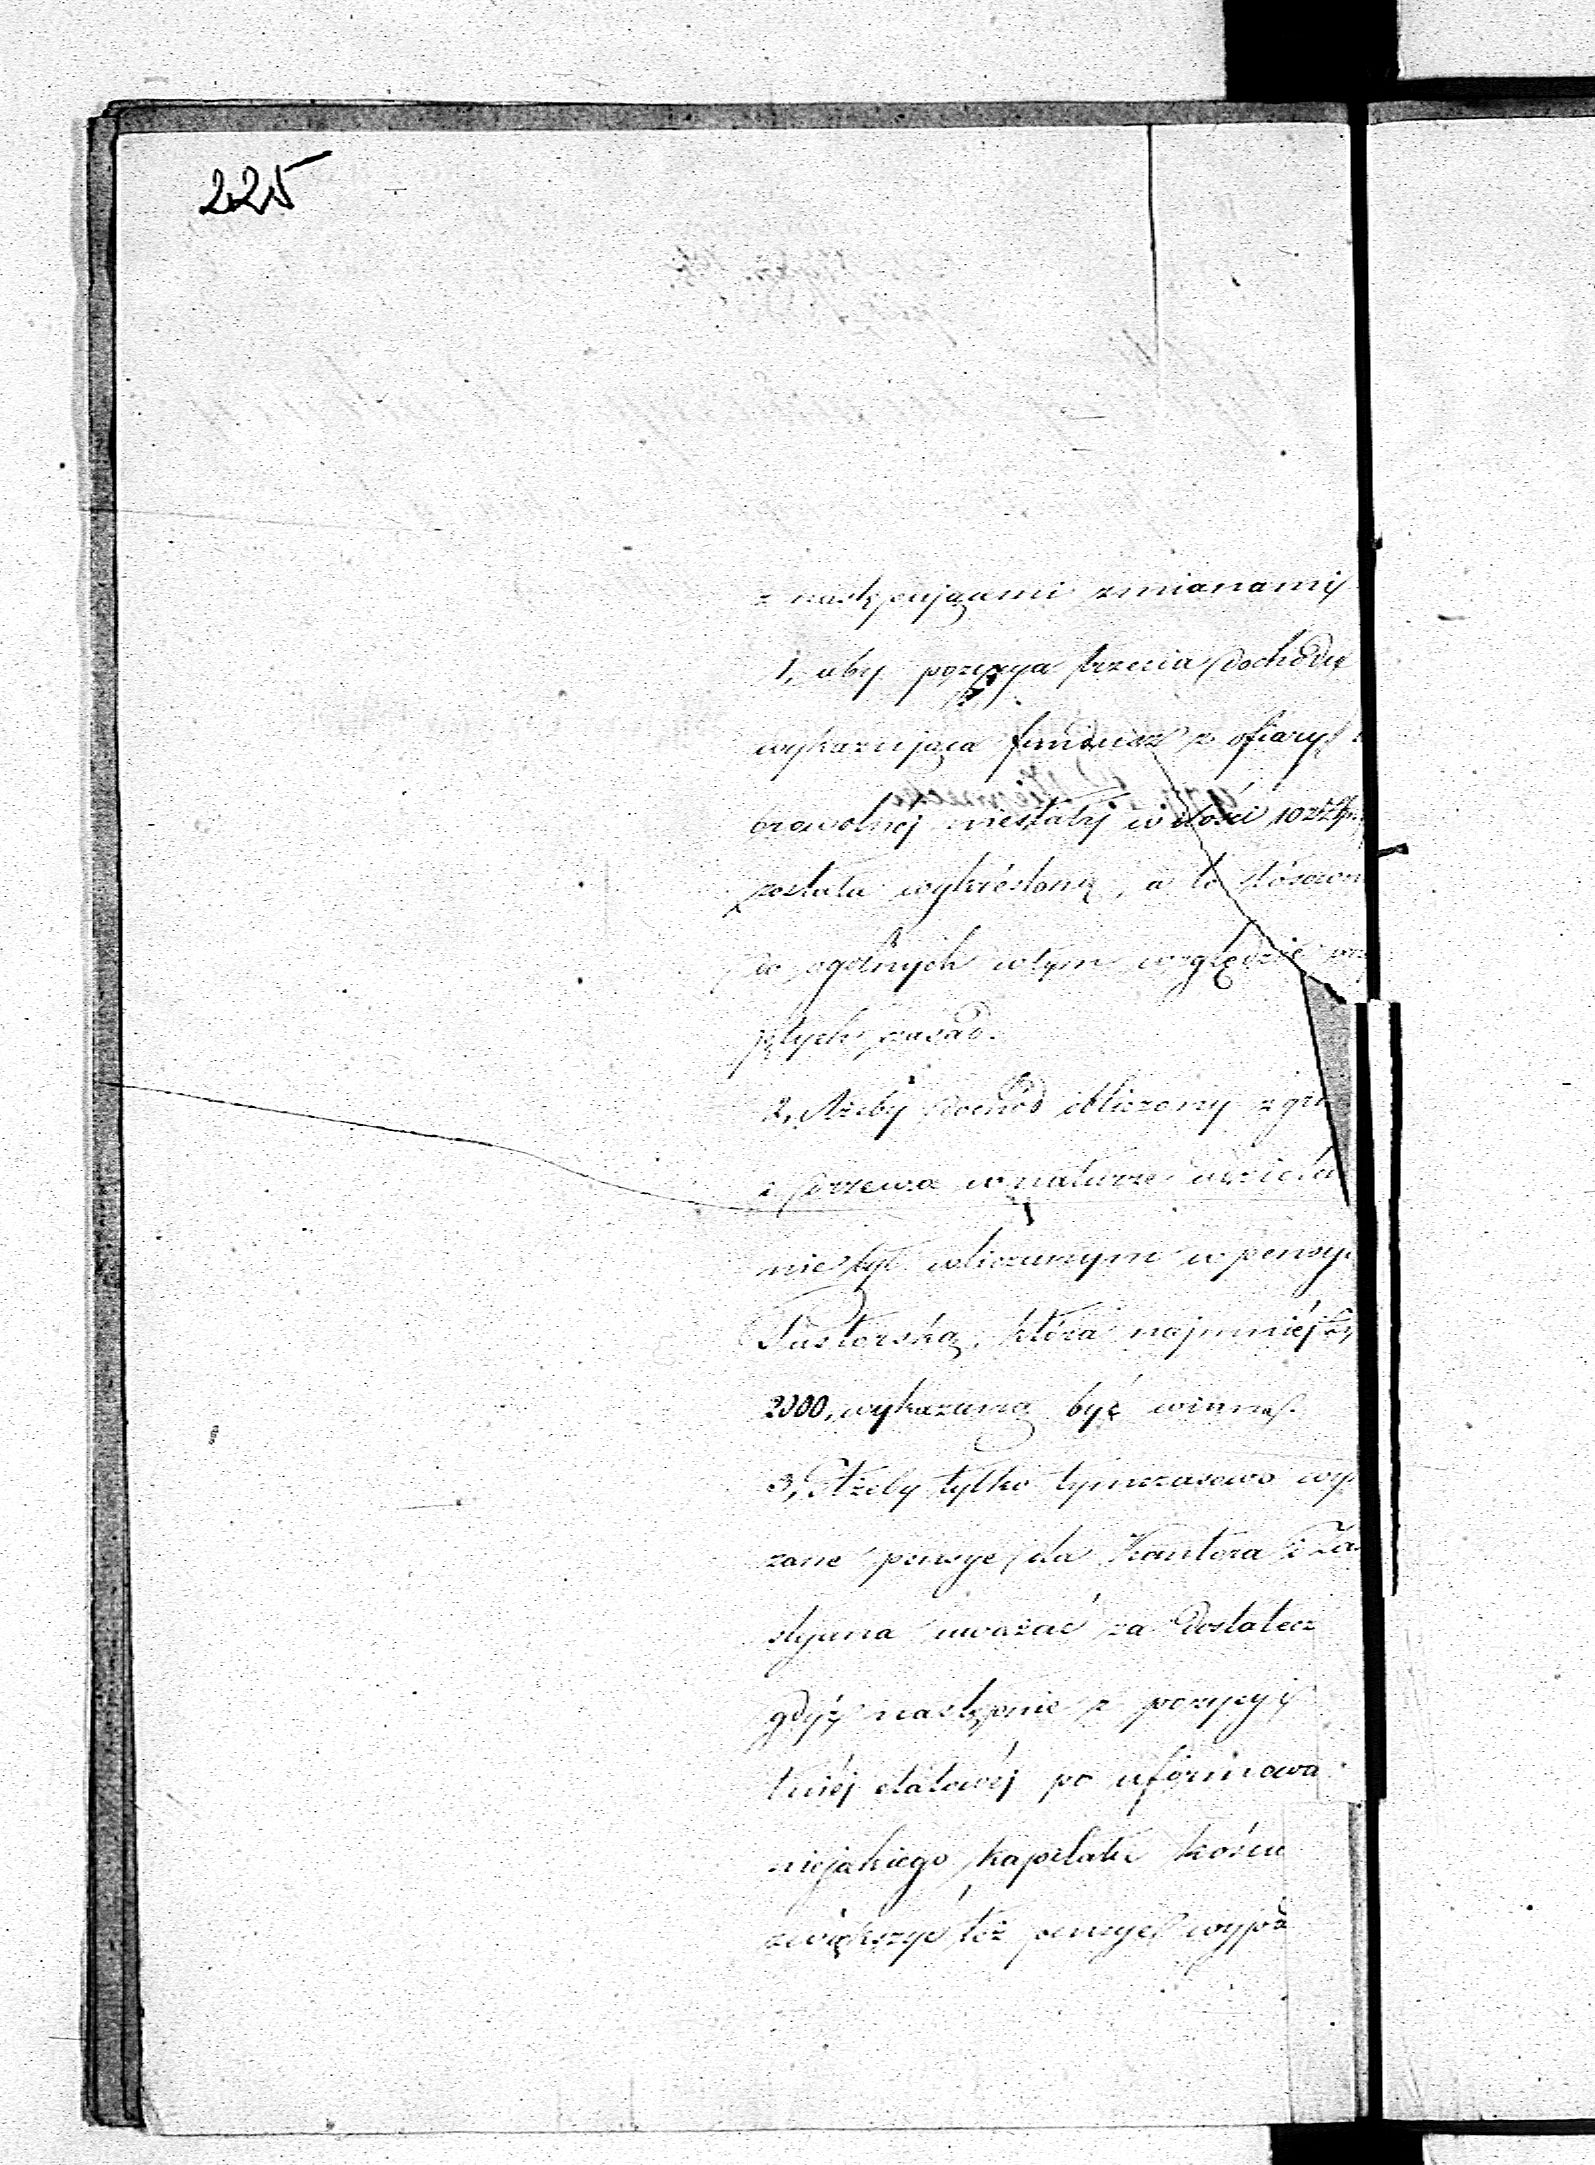 225
z następującemi zmianami
1, aby pozycya trzecia dochodu
wykazująca fundusz z ofiary
browolnej niestałej w ilości
została wykréśloną, a to stósown
do ogólnych w tym względzie prz
jętych zasad.
2, Ażeby dochód obliczony z gru
i drzewa w naturze
nie był wliczanym w pensyą
Pastorską, która najmniéj
2000, wykazaną być winna.
3, Ażeby tylko tymczasowo wyka
zane pensye dla Kantora i Za
styana uważać za dostatecz
gdyż następnie z pozycyi
tniéj etatowéj po uformowa
niejakiego kapitału kościel
zwiększyć też pensye wypa